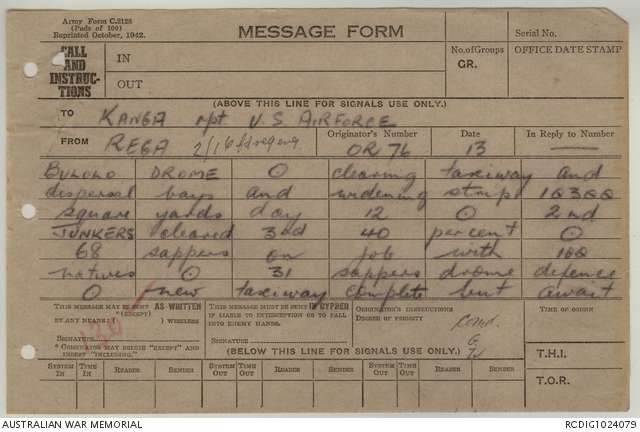 Army Form C.2128
(Pads of 100)
Reprinted October, 1942.
MESSAGE FORM
Serial No.
CALL AND INSTRUCTIONS
IN
OUT
No. of Groups
GR.
OFFICE DATE STAMP
(ABOVE THIS LINE FOR SIGNALS USE ONLY.)
TO KANGA rpt U.S AIRFORCE
FROM REGA 2/16 fd regeng
Originator's Number OR 76
Date 13
In Reply to Number —
BULOLO DROME O clearing taxiway and
dispersal bays and widening strip 1Q3QQ
square yards day 12 O 2nd
JUNKERS cleared 3rd 40 percent O
68 sappers on job with 1QQ
natives O 31 sappers drome defence
O new taxiway complete but await
THIS MESSAGE MAY BE SENT AS WRITTEN
(EXCEPT)
BY ANY MEANS WIRELESS
SIGNATURE
* ORIGINATOR MAY DELETE "EXCEPT" AND INSERT "INCLUDING."
THIS MESSAGE MUST BE SENT IN CYPHER
IF LIABLE TO INTERCEPTION OR TO FALL INTO ENEMY HANDS.
SIGNATURE
ORIGINATOR'S INSTRUCTIONS
DEGREE OF PRIORITY
TIME OF ORIGIN
(BELOW THIS LINE FOR SIGNALS USE ONLY.)
T.H.I.
T.O.R.
SYSTEM IN TIME IN READER SENDER SYSTEM OUT TIME OUT READER SENDER SYSTEM OUT TIME OUT READER SENDER
AUSTRALIAN WAR MEMORIAL
RCDIG1024079